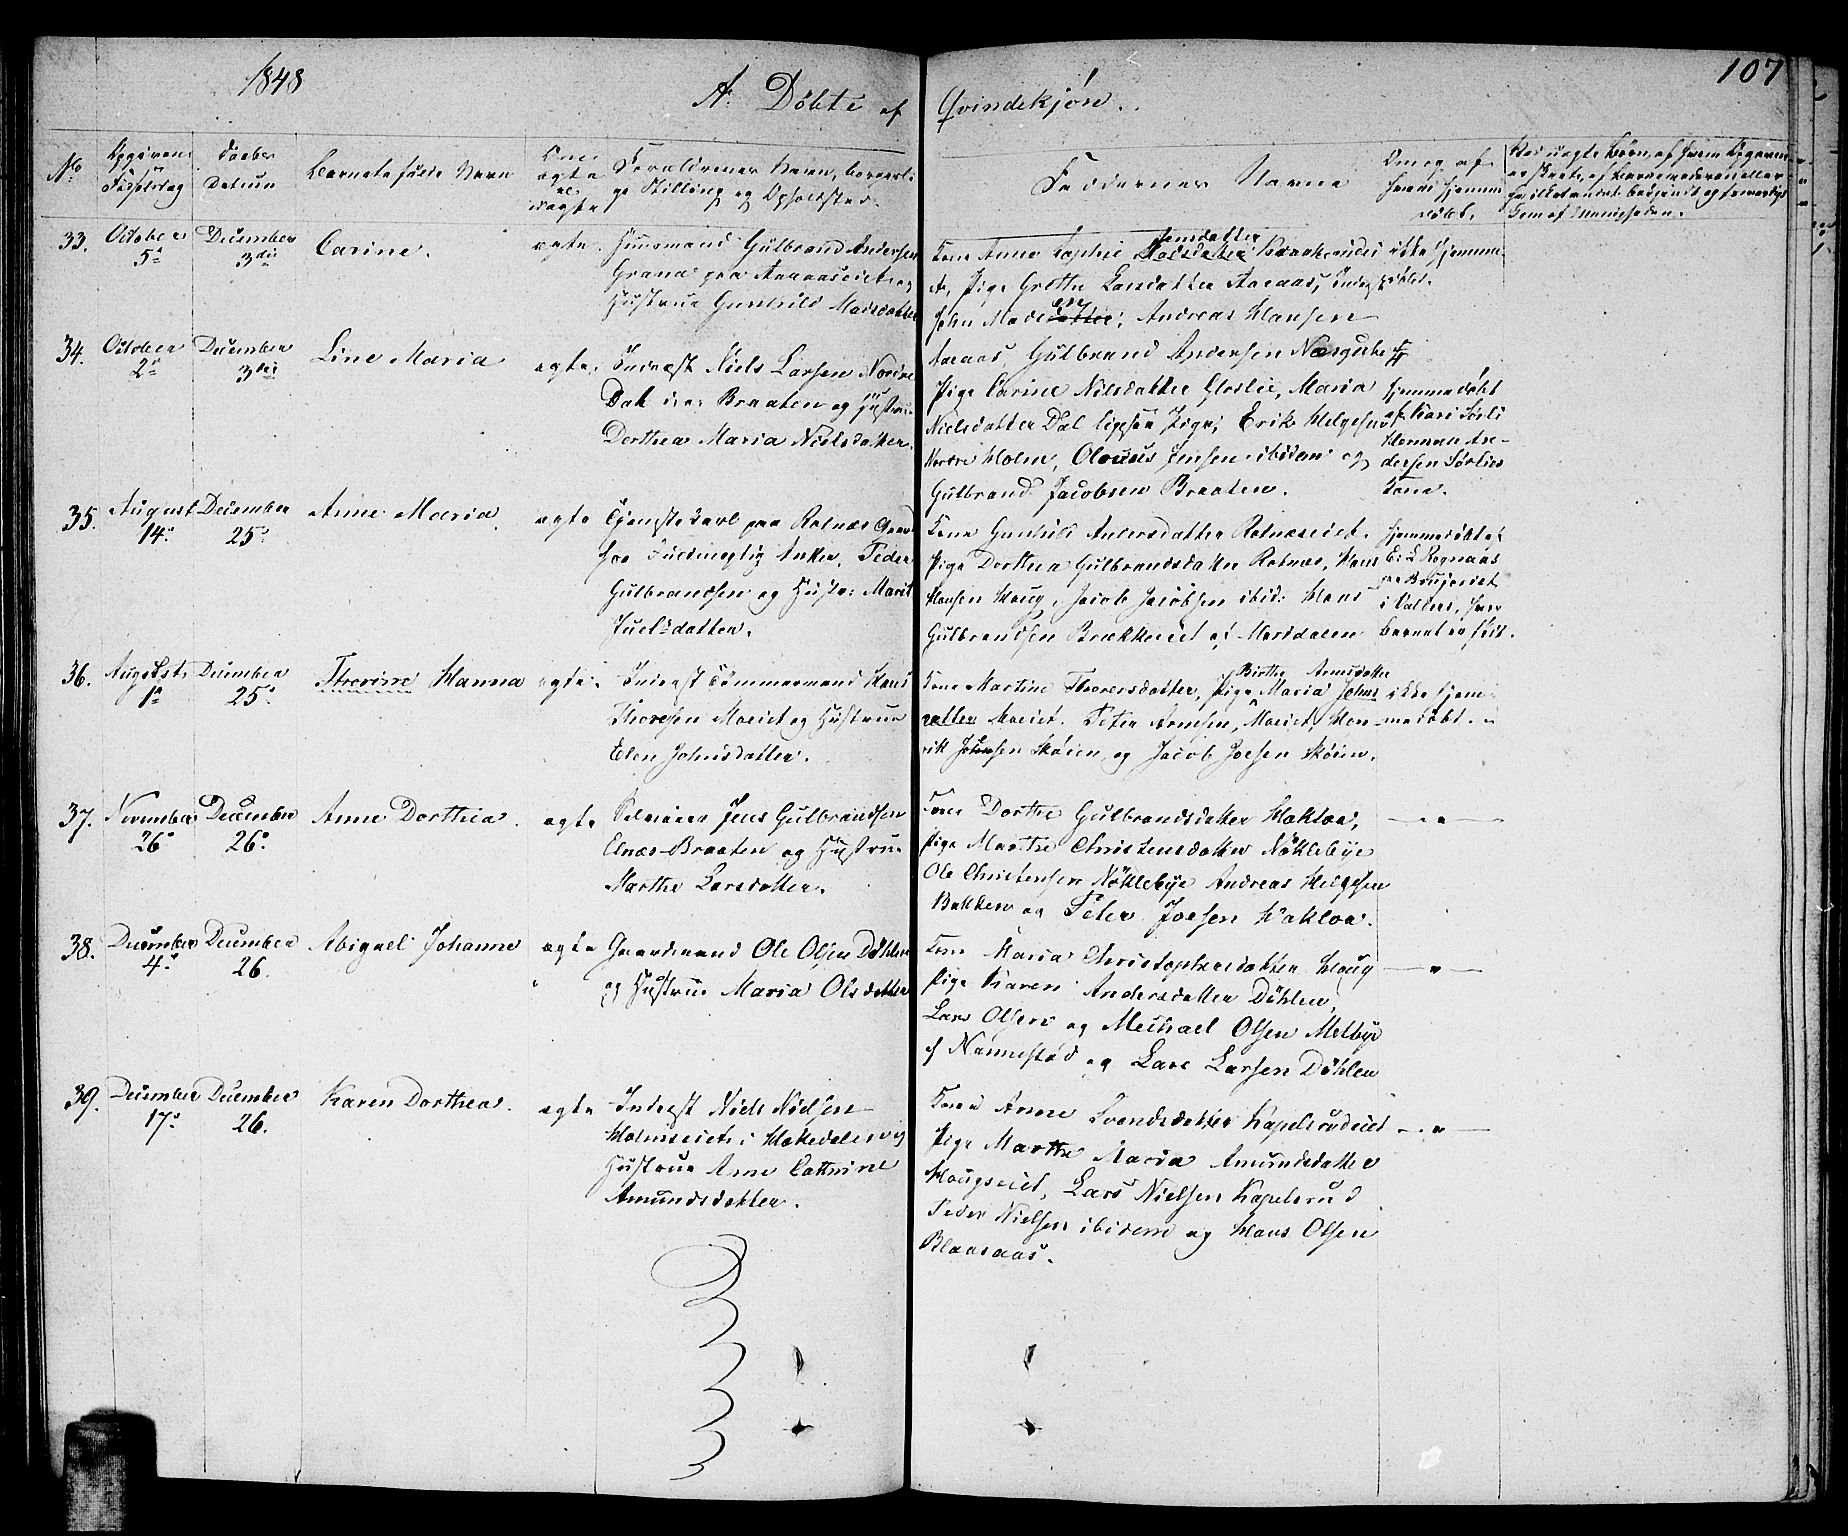 1848
A. Döbte af Qvindekjön.
107
No
Opgiven Födselsdag
Daabens Datum
Barnets fulde Navn
Om ægte el. uægte
Forældrenes Navn, borgerlige Stilling og Opholdsted.
Faddernes Navne
Om og af hvem hjemmedöbt.
33.
October 5te
December 3die
Carine.
ægte.
Huusmand Gulbrand Andersen
Grana paa Aaraaseiet og
Hustrue Gunhild Madsdatter
Jensdatter
Kone Anne Sophie Madsdatter
Pige Grethe Larsdatter Aaraas, Inderst
John Madsen datter, Andreas Hansen
Aaraas Gulbrand Andersen
ikke hjemmedöbt.
34.
October 2de
December 3die
Line Maria
ægte.
Inderst Niels Larsen Nordre
Dal i Braaten og Hustrue
Dorthea Maria Nielsdatter.
Pige Carine Nilsdatter Maria
Nielsdatter Dal ligesaa Pige, Erik Helgesen
Nordre Holm, Olouus Jensen ibidem og
Gulbrand Jacobsen Braaten.
hjemmedöbt
af Kari Sörli
Herman An-
dersen Sörlies
Kone.
35.
August 14de
December 25de
Anne Maria
ægte
Tjenestekarl paa Rotnæs Gaard
hos Fuldmægtig Anker, Peder
Gulbrandsen og Hustr: Marit
Juelsdatter.
Kone Gunhild Andersdatter Rotnæseiet.
Pige Dorthea Gulbrandsdatter Rotnæs, Hans
Hansen Haug, Jacob Jacobsen ibid: Hans
Gulbrandsen Brækkeeiet af Maridalen
hjemmedöbt af
E: L Rognaas
i Valders, hvor
barnet er född.
36.
August 1ste
December 25de
Thorine Hanna
ægte
Inderst Tömmermand Hans
Thoresen Moeiet og Hustrue
Elen Johnsdatter.
Birthe Arnesdatter
Kone Martine Thorersdatter, Pige Maria Johns
datter Moeiet. Peter Arnesen, Moeiet, Hen-
rik Johnsen Sköien, og Jacob Joesen Sköien.
ikke hjem-
medöbt.
37.
November 26de
December 26de
Anne Dorthea.
ægte
Selveier Jens Gulbrandsen
Elnæs-Braaten og Hustrue
Marthe Larsdatter.
Kone Dorthe Gulbrandsdatter Hakloa,
Pige Marthe Christensdatter Nöklebye
Ole Christensen Nöklebye Andreas Helgesen
Bakken og Peter Joesen Hakloa.
— " —
38.
December 4de
December 26.
Abigael Johanne
ægte
Gaardmand Ole Olsen Döhlen
og Hustrue Maria Olsdatter
Kone Maria Christophersdatter Haug
Pige Karen Andersdatter Döhlen,
Lars Olsen og Michael Olsen Melbye
af Nannestad og Lars Larsen Döhlen
— " —
39.
December 17de
December 26.
Karen Dorthea.
ægte
Inderst Niels Nielsen
Holmseiet i Hakedalen og
Hustrue Anne Cathrine
Amundsdatter.
Kone Anne Svendsdatter Kapelsrudeiet
Pige Marthe Maria Amundsdatter
Haugseiet, Lars Nielsen Kapelsrud
Peder Nielsen ibidem og Hans Olsen
Blaasaas.
— " —